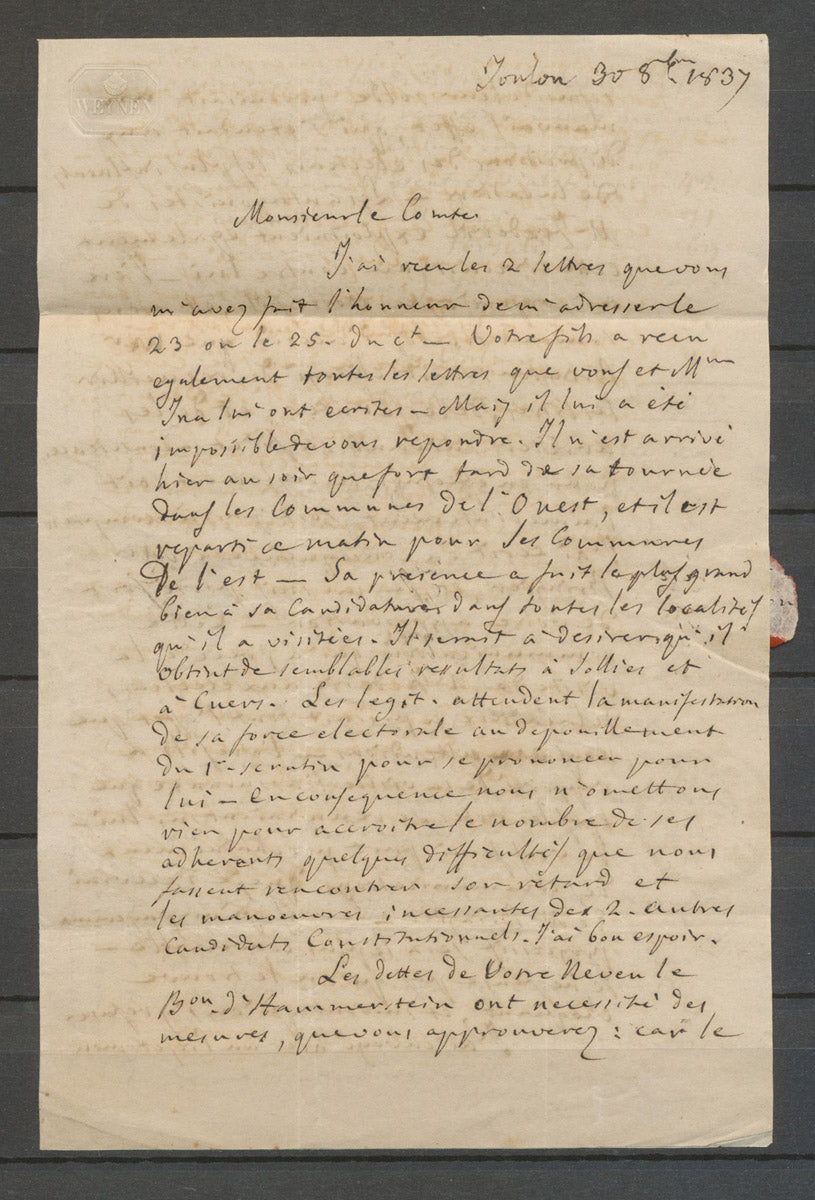 WEYNEN
Toulon 30 8bre 1837
Monsieur le Comte
J'ai recu les 2 lettres que vous
m'avez fait l'honneur de m'adresser le
23 ou le 25. du ct — Votre fils a recu
egalement toutes les lettres que vous et Mme
lui ont ecrites — Mais il lui a été
impossible de vous repondre. Il n'est arrivé
hier au soir que fort tard de sa tournée
dans les Communes de l'Ouest, et il est
reparti ce matin pour les Communes
De l'est — Sa présence a fait le plus grand
bien à sa candidature dans toutes les localités
qu'il a visitées. Il serait à desirer qu'il
obtint de semblables resultats à Sollies et
à Cuers. Les legit. attendent la manifestation
de sa force electorale au depouillement
du 1r scrutin pour se prononcer pour
lui — en consequence nous n'omettons
rien pour accroitre le nombre de ses
adherents quelques difficultés que nous
fassent rencontrer son retard et
les manoeuvres incessantes des 2 autres
Candidats Constitutionnels. J'ai bon espoir.
Les dettes de Votre Neveu le
Bon d'Hammerstein ont necessité des
mesures, que vous approuverez : car le